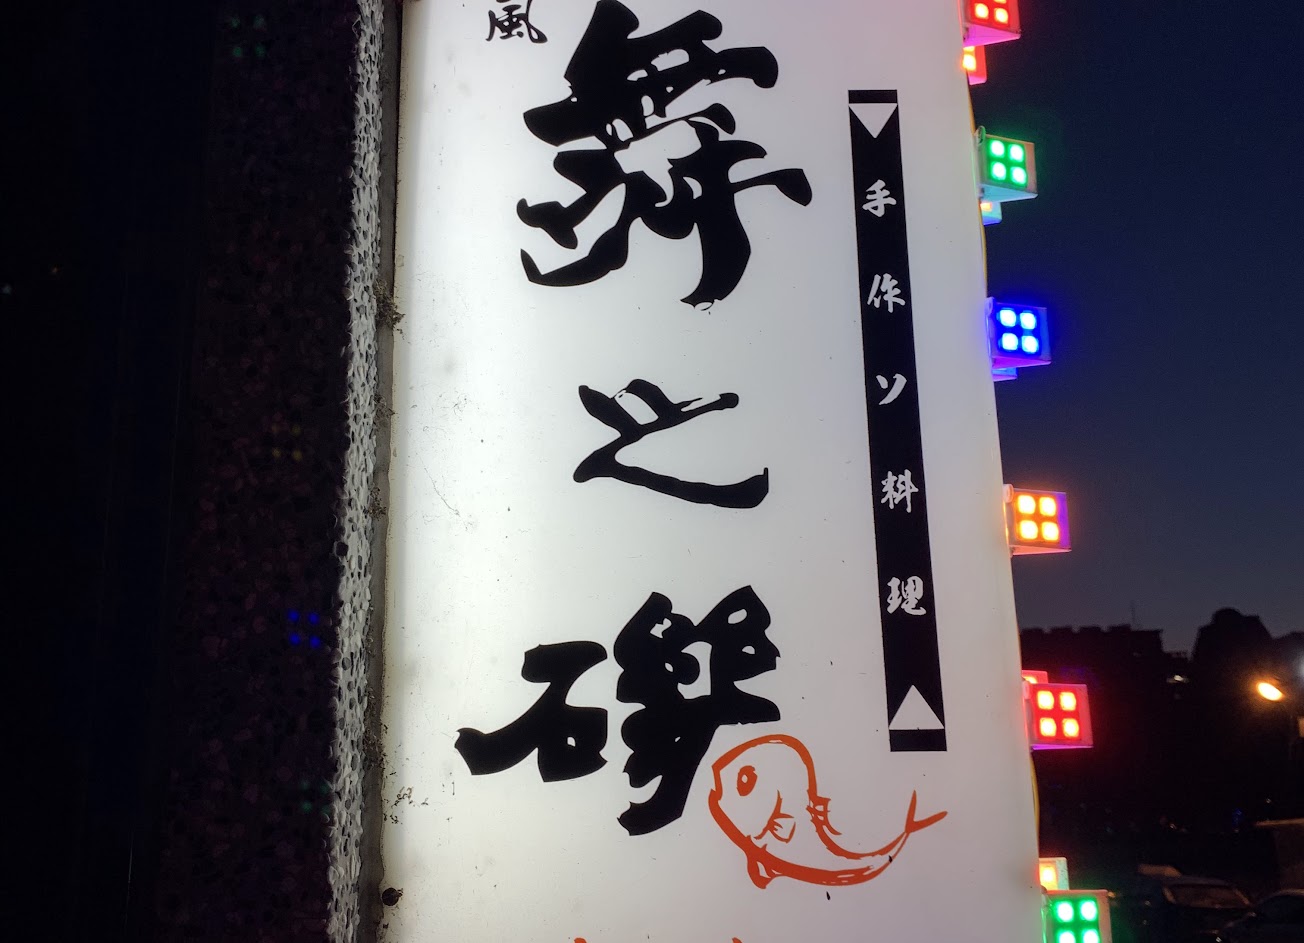 風
舞之磯
手作ソ料理